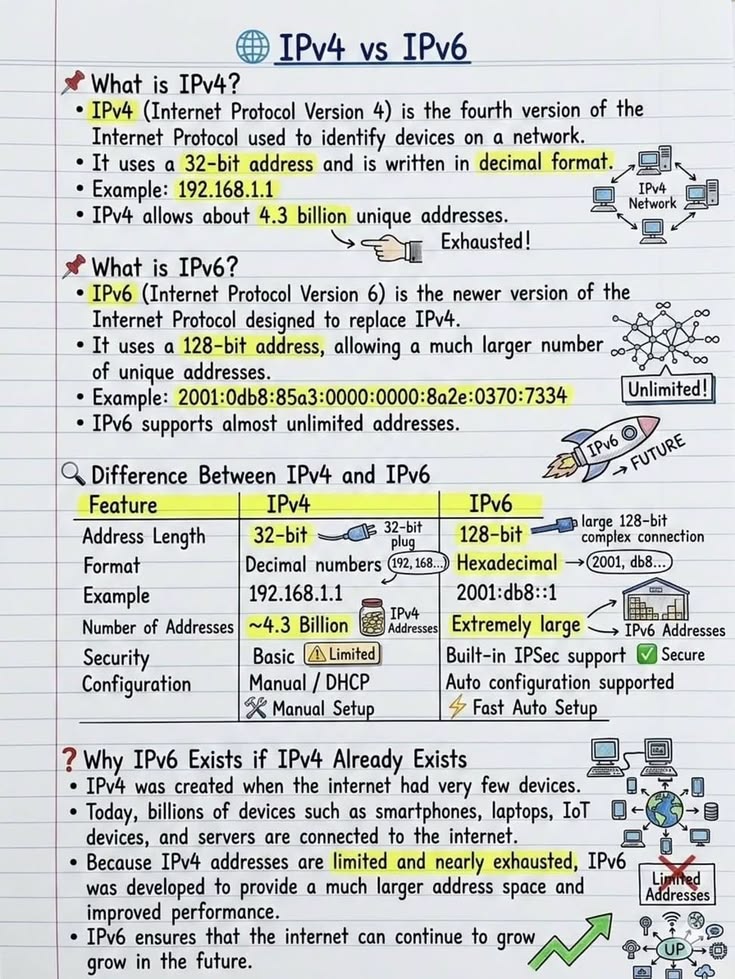 IPv4 vs IPv6
What is IPv4?
• IPv4 (Internet Protocol Version 4) is the fourth version of the
Internet Protocol used to identify devices on a network.
• It uses a 32-bit address and is written in decimal format.
• Example: 192.168.1.1
• IPv4 allows about 4.3 billion unique addresses.
Exhausted!
IPv4
Network
What is IPv6?
• IPv6 (Internet Protocol Version 6) is the newer version of the
Internet Protocol designed to replace IPv4.
• It uses a 128-bit address, allowing a much larger number
of unique addresses.
• Example: 2001:0db8:85a3:0000:0000:8a2e:0370:7334
• IPv6 supports almost unlimited addresses.
Unlimited!
IPv6
→ FUTURE
Difference Between IPv4 and IPv6
Feature IPv4 IPv6
Address Length 32-bit 32-bit plug 128-bit large 128-bit complex connection
Format Decimal numbers 192, 168... Hexadecimal → 2001, db8...
Example 192.168.1.1 2001:db8::1
Number of Addresses ~4.3 Billion IPv4 Addresses Extremely large IPv6 Addresses
Security Basic Limited Built-in IPSec support Secure
Configuration Manual / DHCP Auto configuration supported
Manual Setup Fast Auto Setup
Why IPv6 Exists if IPv4 Already Exists
• IPv4 was created when the internet had very few devices.
• Today, billions of devices such as smartphones, laptops, IoT
devices, and servers are connected to the internet.
• Because IPv4 addresses are limited and nearly exhausted, IPv6
was developed to provide a much larger address space and
improved performance.
• IPv6 ensures that the internet can continue to grow
grow in the future.
Limited
Addresses
UP